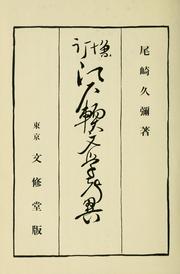 尾崎久彌著
増訂
江戸軟文学考異
東京 文修堂版